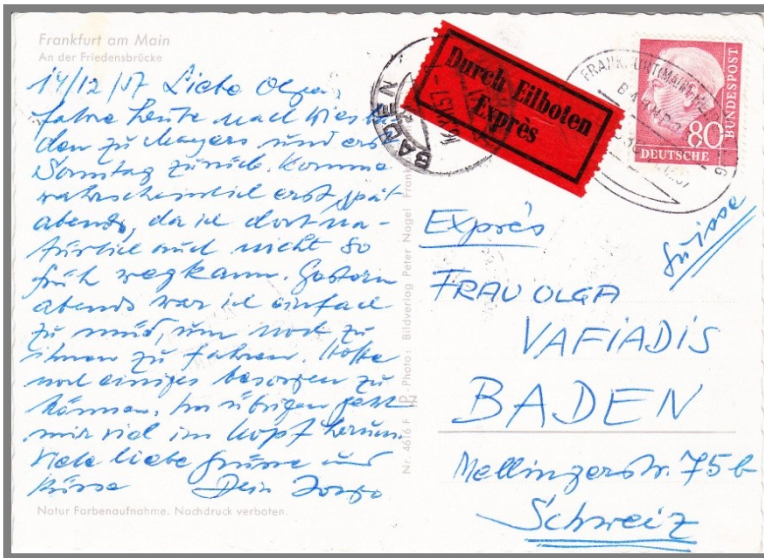 Frankfurt am Main
An der Friedensbrücke
14/12/57 Liebe Olga,
fahre heute nach Wiesba-
den zu Mayers und erst
Sonntag zurück. Komme
wahrscheinlich erst spät
abends, da ich dort na-
türlich auch nicht so
früh wegkann. Gestern
abends war ich einfach
zu müd, um noch zu
ihnen zu fahren. Hoffe
noch einiges besorgen zu
können. Im übrigen geht
mir viel im Kopf herum.
Viele liebe Grüsse und
Küsse Dein
Natur Farbenaufnahme. Nachdruck verboten.
Nr. 4616 F Photo: Bildverlag Peter Nagel Frank
BADEN
Durch Eilboten
Exprès
FRANKFURT (MAIN)
80
DEUTSCHE
BUNDESPOST
Exprès
Suisse
FRAU OLGA
VAFIADIS
BADEN
Mellingerstr. 75b
Schweiz